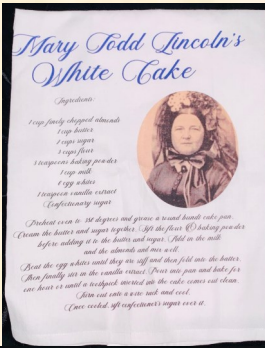 Mary Todd Lincoln's
White Cake
Ingredients
1 cup finely chopped almonds
1 cup butter
cups sugar
cups flour
teaspoons baking powder
1 cup milk
egg whites
1 teaspoon vanilla extract
Confectionary sugar
Preheat oven to degrees and grease a round bundt cake pan.
Cream the butter and sugar together. Sift the flour & baking powder
before adding it to the butter and sugar. Add in the milk
and the almonds and mix well.
Beat the egg whites until they are stiff and then fold into the batter.
Then finally stir in the vanilla extract. Pour into pan and bake for
one hour or until a toothpick inserted into the cake comes out clean.
Turn out onto a wire rack and cool.
Once cooled, sift confectioner's sugar over it.